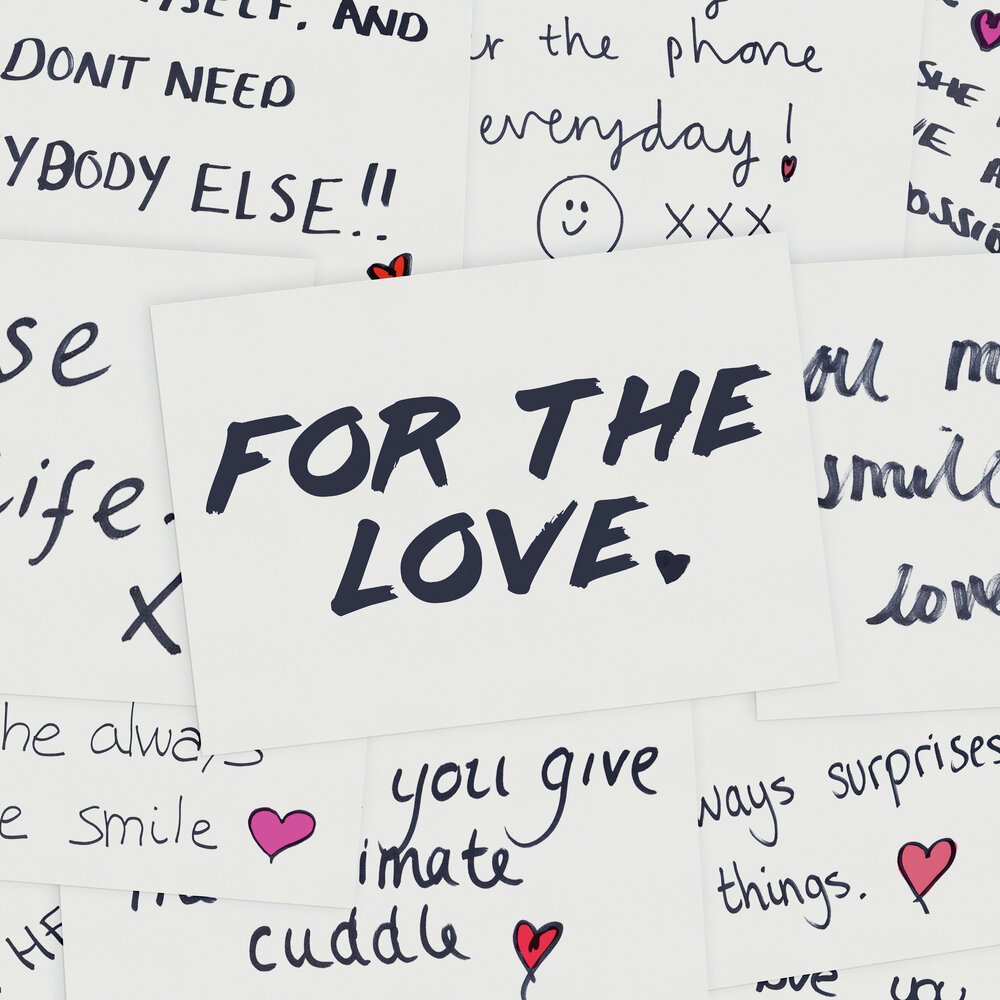 AND
DONT NEED
YBODY ELSE!!
r the phone
everyday!
XXX
SHE
se
life.
X
FOR THE
LOVE.
ou m
smile
love
he always
e smile
you give
imate
cuddle
ways surprises
things.
HE
love you